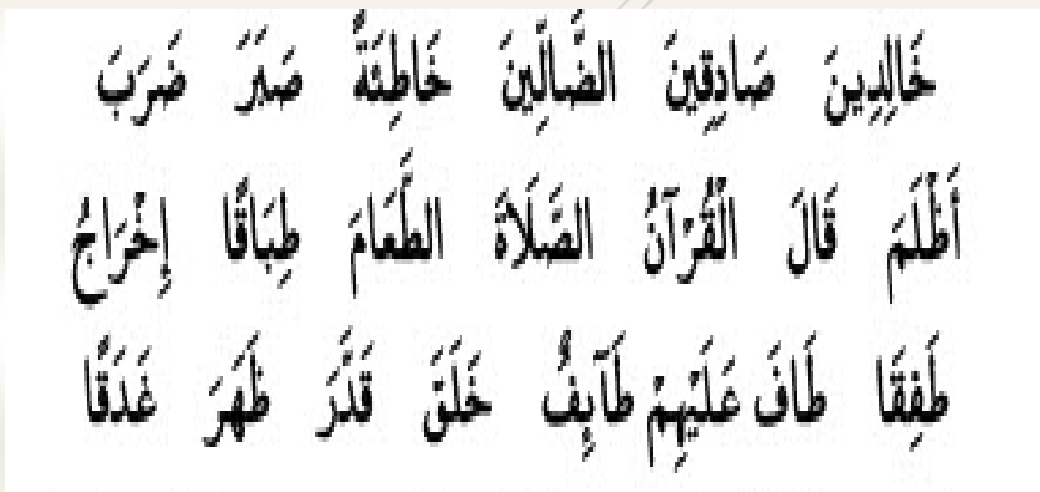 خَالِدِينَ صَادِقِينَ الضَّالِّينَ خَاطِئَةٌ صَبَرَ ضَرَبَ
أَظْلَمَ قَالَ الْقُرْآنُ الصَّلَاةَ الطَّعَامَ طِبَاقًا إِخْرَاجُ
طَفِقَا طَافَ عَلَيْهِمْ طَآئِفٌ خَلَقَ قَدَّرَ ظَهَرَ غَدَقًا